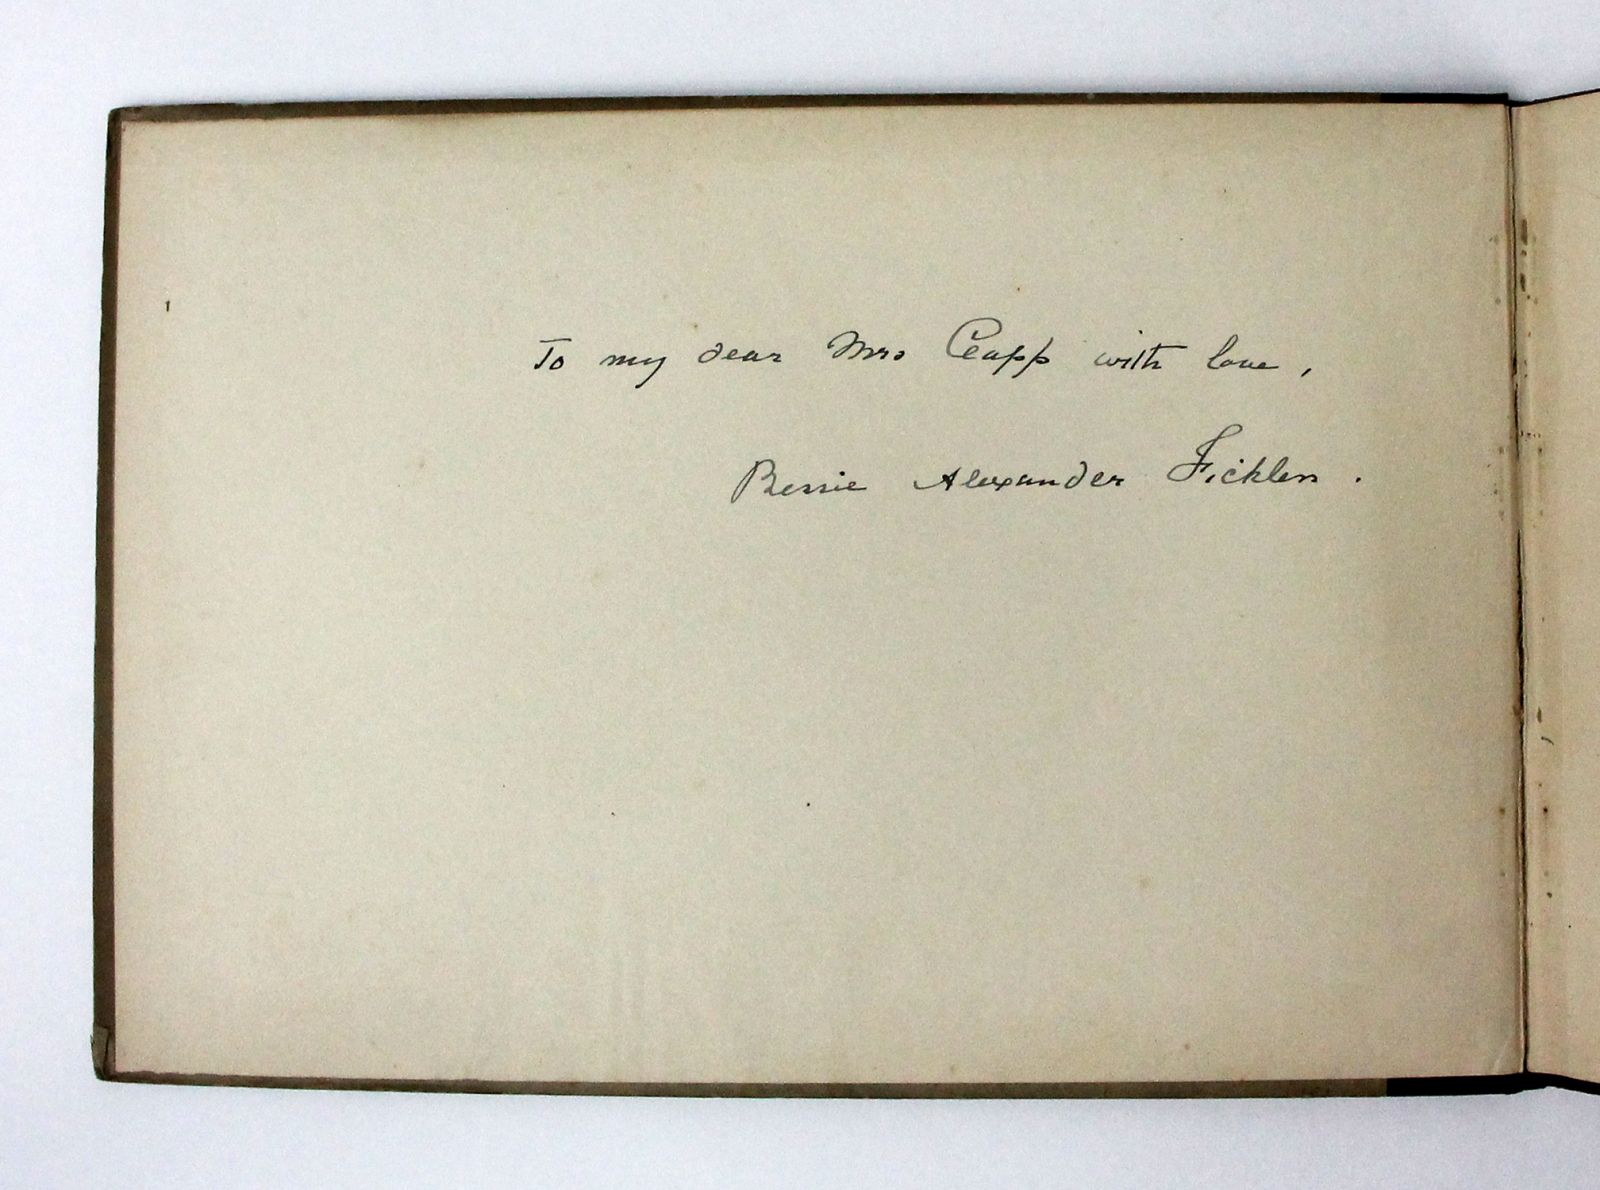 To my dear Mrs Clapp with love,
Bessie Alexander Ficklen.